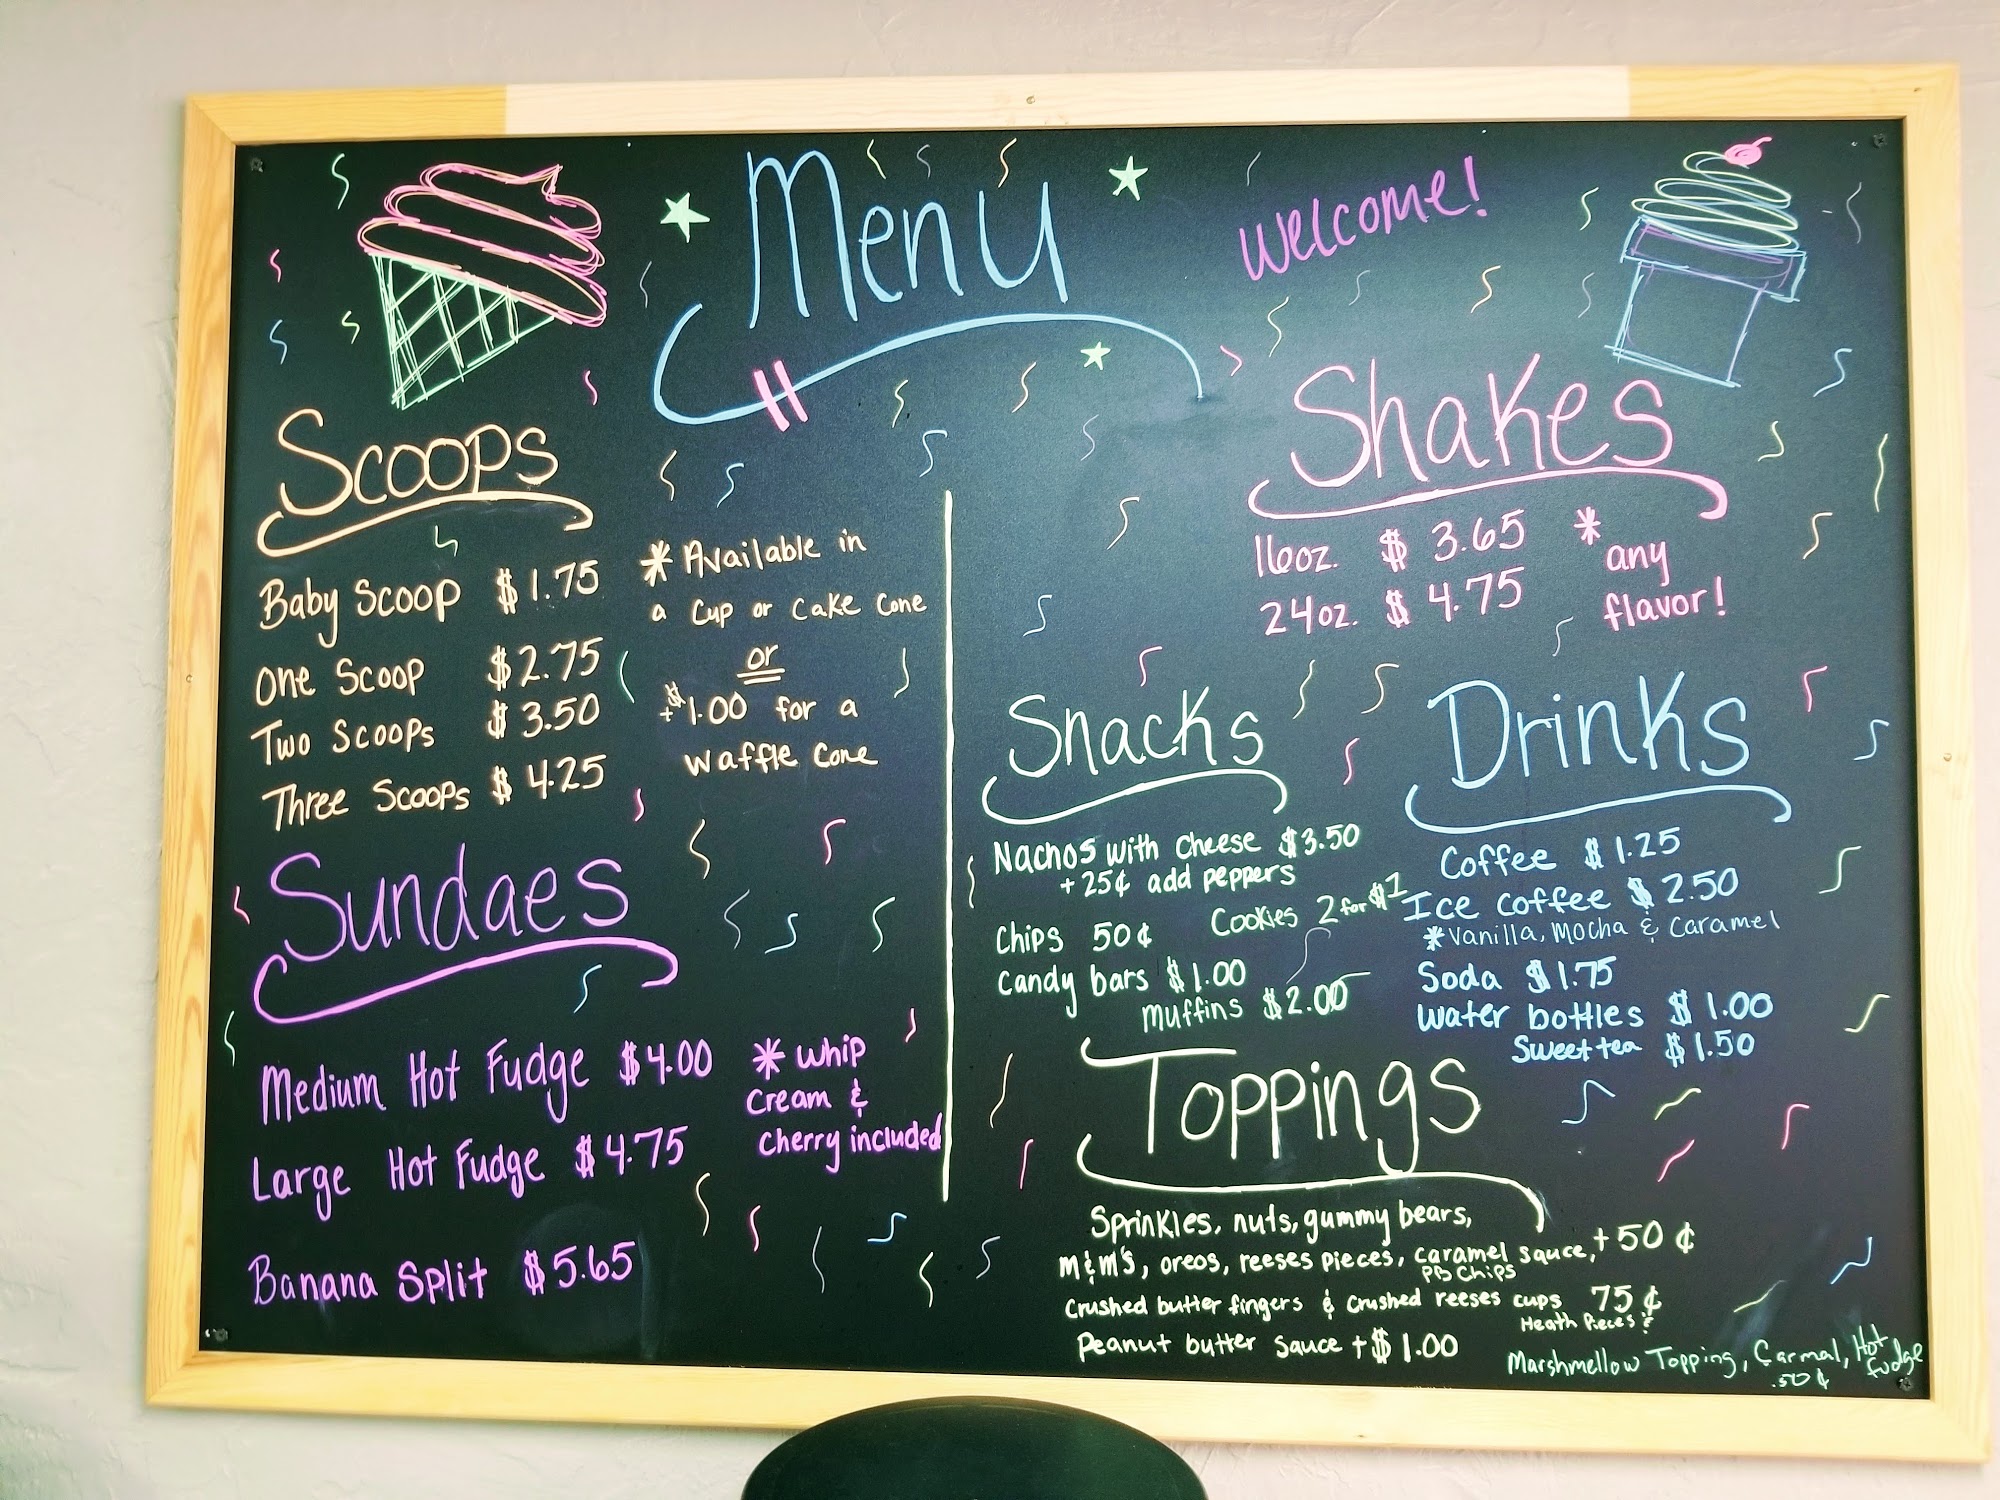 Menu
Welcome!
Scoops
Baby Scoop $1.75
One Scoop $2.75
Two Scoops $3.50
Three Scoops $4.25
* Available in
a Cup or Cake Cone
or
+$1.00 for a
Waffle Cone
Sundaes
Medium Hot Fudge $4.00
Large Hot Fudge $4.75
Banana Split $5.65
* Whip
Cream &
Cherry included
Shakes
16oz. $3.65
24oz. $4.75
* any
flavor!
Snacks
Nachos with cheese $3.50
+25¢ add peppers
Cookies 2 for $1
Chips 50¢
Candy bars $1.00
Muffins $2.00
Drinks
Coffee $1.25
Ice coffee $2.50
*Vanilla, Mocha & Caramel
Soda $1.75
Water bottles $1.00
Sweet tea $1.50
Toppings
Sprinkles, nuts, gummy bears,
M&M's, oreos, reeses pieces, caramel sauce, +50¢
PB Chips
Crushed butter fingers & Crushed reeses cups 75¢
Heath Pieces &
Peanut butter sauce +$1.00
Marshmellow Topping, Carmal, Hot Fudge
.50¢